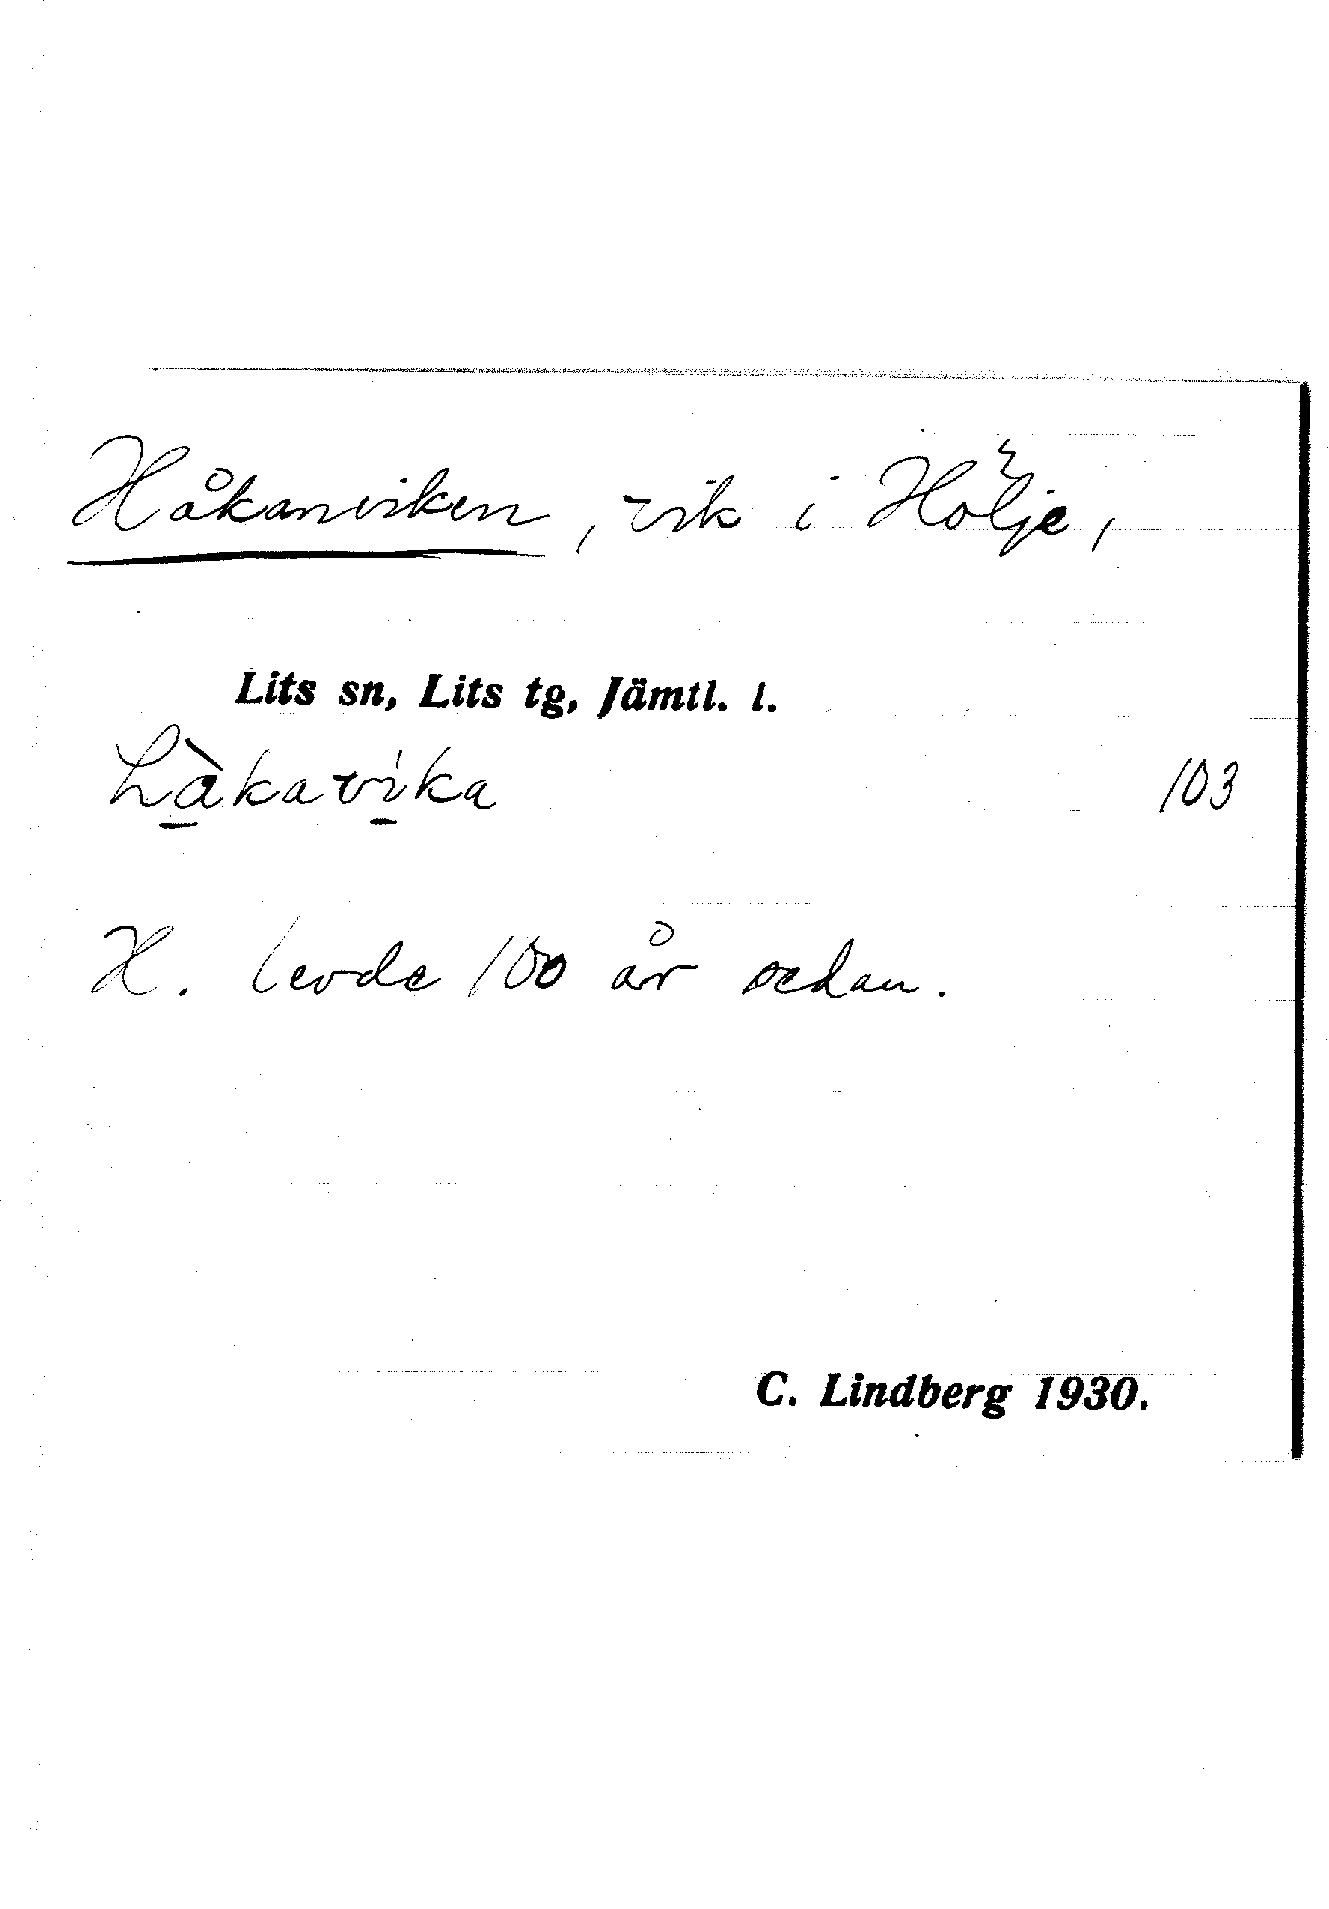 Håkanviken, vik i Hölje,
Lits sn, Lits tg, Jämtl. l.
hàkavika 103
H. levde 100 år sedan.
C. Lindberg 1930.